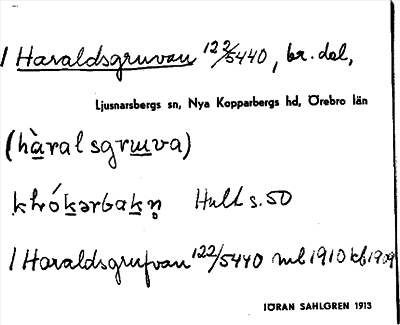 1 Haraldsgruvan 122/5440, br. del,
Ljusnarsbergs sn, Nya Kopparbergs hd, Örebro län
(hàralsgruva)
Hult s. 50
1 Haraldsgrufvan 122/5440 ml 1910 kf 1909
JÖRAN SAHLGREN 1913